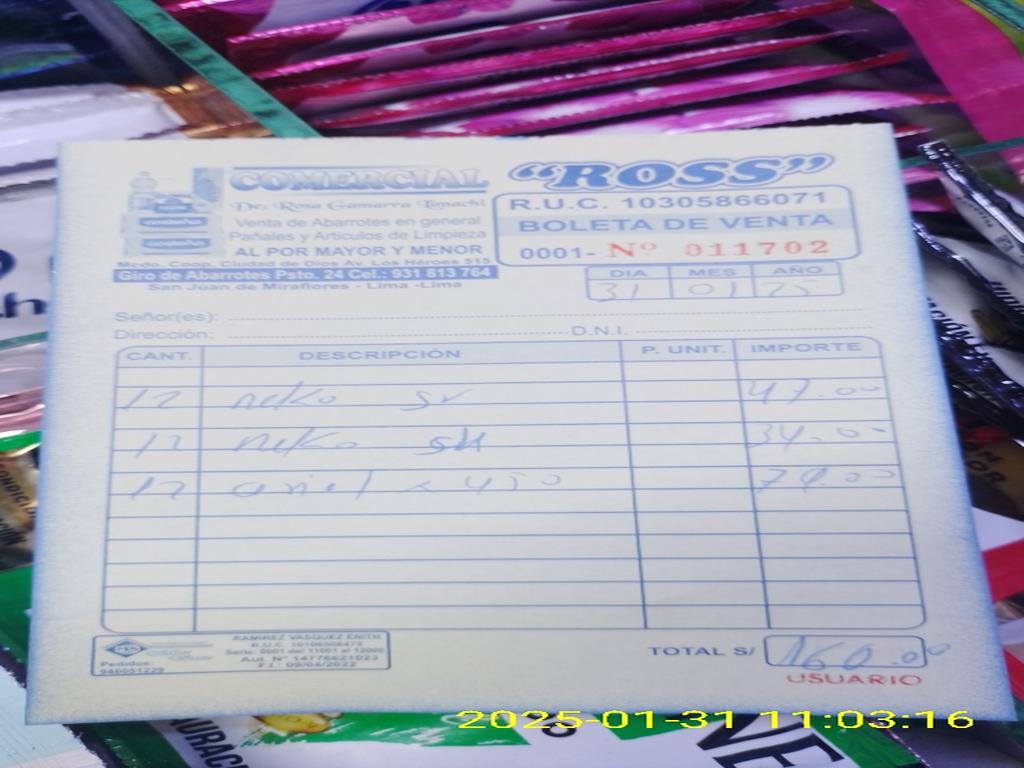 COMERCIAL "ROSS"
De: Rosa Gamarra Limachi
Venta de Abarrotes en general
Pañales y Artículos de Limpieza
AL POR MAYOR Y MENOR
Mcdo. Coop. Ciudad de Dios Av. Los Héroes 515
Giro de Abarrotes Psto. 24 Cel.: 931 813 764
San Juan de Miraflores - Lima -Lima
R.U.C. 10305866071
BOLETA DE VENTA
0001- Nº 011702
DIA MES AÑO
31 01 25
Señor(es):
Dirección: D.N.I.
CANT. DESCRIPCIÓN P. UNIT. IMPORTE
12 neko 47.00
12 neko 34.00
12 ariel x 450 79.00
RAMIREZ VASQUEZ ENITH
Serie: 0001 del 11001 al 12000
Aut. Nº 14776621023
F.I.: 09/04/2022
Pedidos:
946051229
TOTAL S/ 160.00
USUARIO
2025-01-31 11:03:16